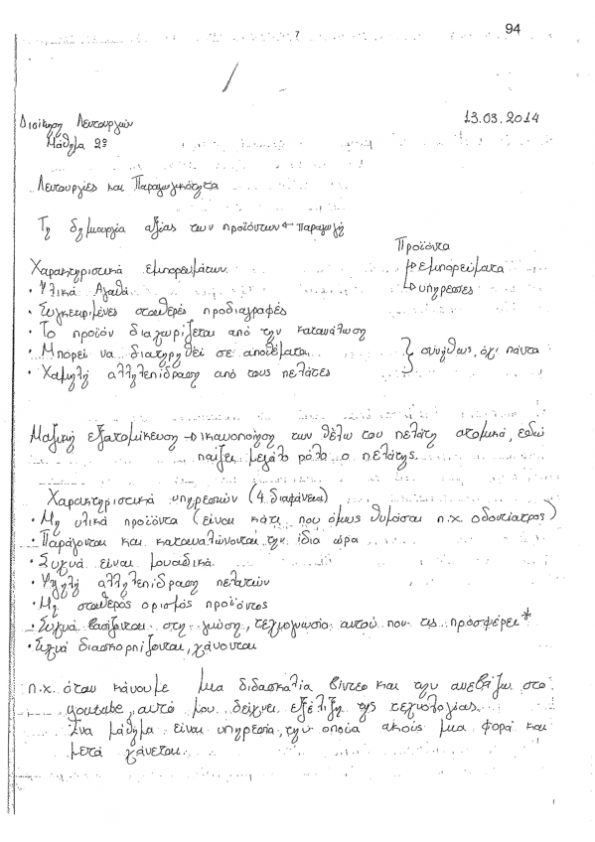 94
7
Διοίκηση Λειτουργιών
13.03.2014
Μάθημα 2º
Λειτουργίες και Παραγωγικότητα
Τη δημιουργία αξίας των προϊόντων ← παραγωγή
Προϊόντα
→ εμπορεύματα
→ υπηρεσίες
Χαρακτηριστικά εμπορευμάτων
• Υλικά Αγαθά
• Συγκεκριμένες σταθερές προδιαγραφές
• Το προϊόν διαχωρίζεται από την κατανάλωση
• Μπορεί να διατηρηθεί σε αποθέματα
} συνήθως, όχι πάντα
• Χαμηλή αλληλεπίδραση από τους πελάτες
Μαζική εξατομίκευση → ικανοποίηση των θέλω του πελάτη ατομικά, εδώ
παίζει μεγάλο ρόλο ο πελάτης.
Χαρακτηριστικά υπηρεσιών (4 διαφάνεια)
• Μη υλικά προϊόντα (είναι κάτι που όμως θυμάσαι π.χ. οδοντίατρος)
• Παράγονται και καταναλώνονται την ίδια ώρα
• Συχνά είναι μοναδικά
• Υψηλή αλληλεπίδραση πελατών
• Μη σταθερός ορισμός προϊόντος
• Συχνά βασίζονται στη γνώση, τεχνογνωσία αυτού που τις προσφέρει*
• Συχνά διασκορπίζονται, χάνονται
π.χ. όταν κάνουμε μια διδασκαλία βίντεο και την ανεβάζω στο
youtube, αυτό μου δείχνει εξέλιξη της τεχνολογίας.
Ένα μάθημα είναι υπηρεσία, την οποία ακούς μια φορά και
μετά χάνεται.